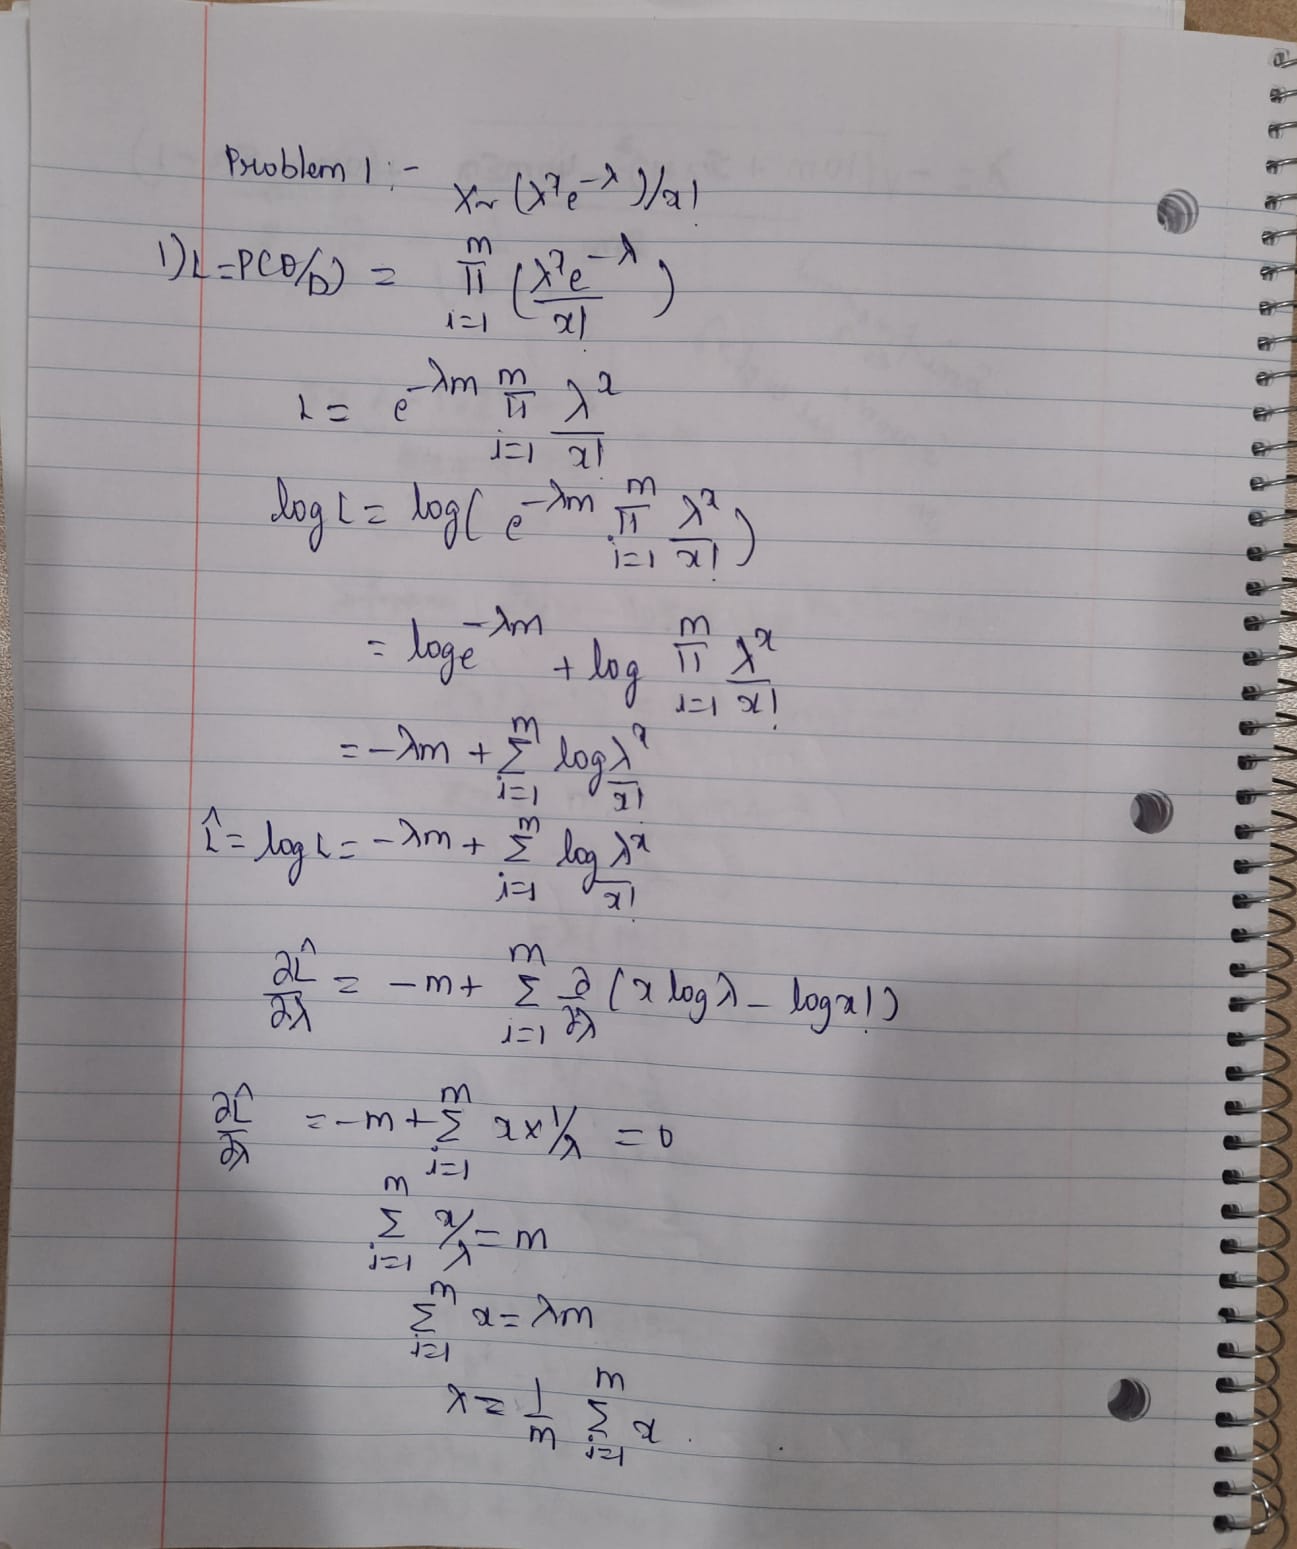 Problem 1 :-
X~ (λ^x e^-λ)/x!
1) L = P(θ/D) = ∏_{i=1}^{m} (λ^x e^-λ / x!)
L = e^-λm ∏_{i=1}^{m} λ^x / x!
log L = log( e^-λm ∏_{i=1}^{m} λ^x / x! )
= log e^-λm + log ∏_{i=1}^{m} λ^x / x!
= -λm + ∑_{i=1}^{m} log λ^x / x!
L̂ = log L = -λm + ∑_{i=1}^{m} log λ^x / x!
∂L̂/∂λ = -m + ∑_{i=1}^{m} ∂/∂λ (x log λ - log x!)
∂L̂/∂λ = -m + ∑_{i=1}^{m} x × 1/λ = 0
∑_{i=1}^{m} x/λ = m
∑_{i=1}^{m} x = λm
λ = 1/m ∑_{i=1}^{m} x .